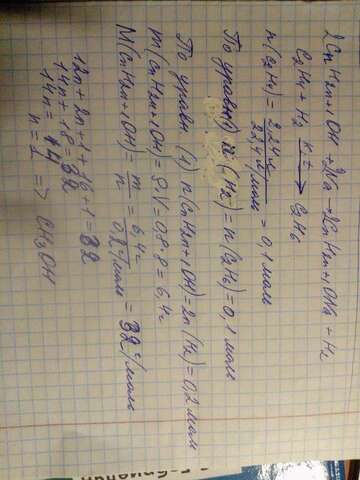 2CnH2n+1OH + 2Na → 2CnH2n+1ONa + H2
C2H4 + H2 kt→ C2H6
n(C2H4) = 2,24 л / 22,4 л/моль = 0,1 моль
По уравн n(H2) = n(C2H6) = 0,1 моль
По уравн (1) n(CnH2n+1OH) = 2n(H2) = 0,2 моль
m(CnH2n+1OH) = ρ·V = 0,8·8 = 6,4 г
M(CnH2n+1OH) = m/n = 6,4 г / 0,2 моль = 32 г/моль
12n + 2n + 1 + 16 + 1 = 32
14n + 18 = 32
14n = 14
n = 1 => CH3OH